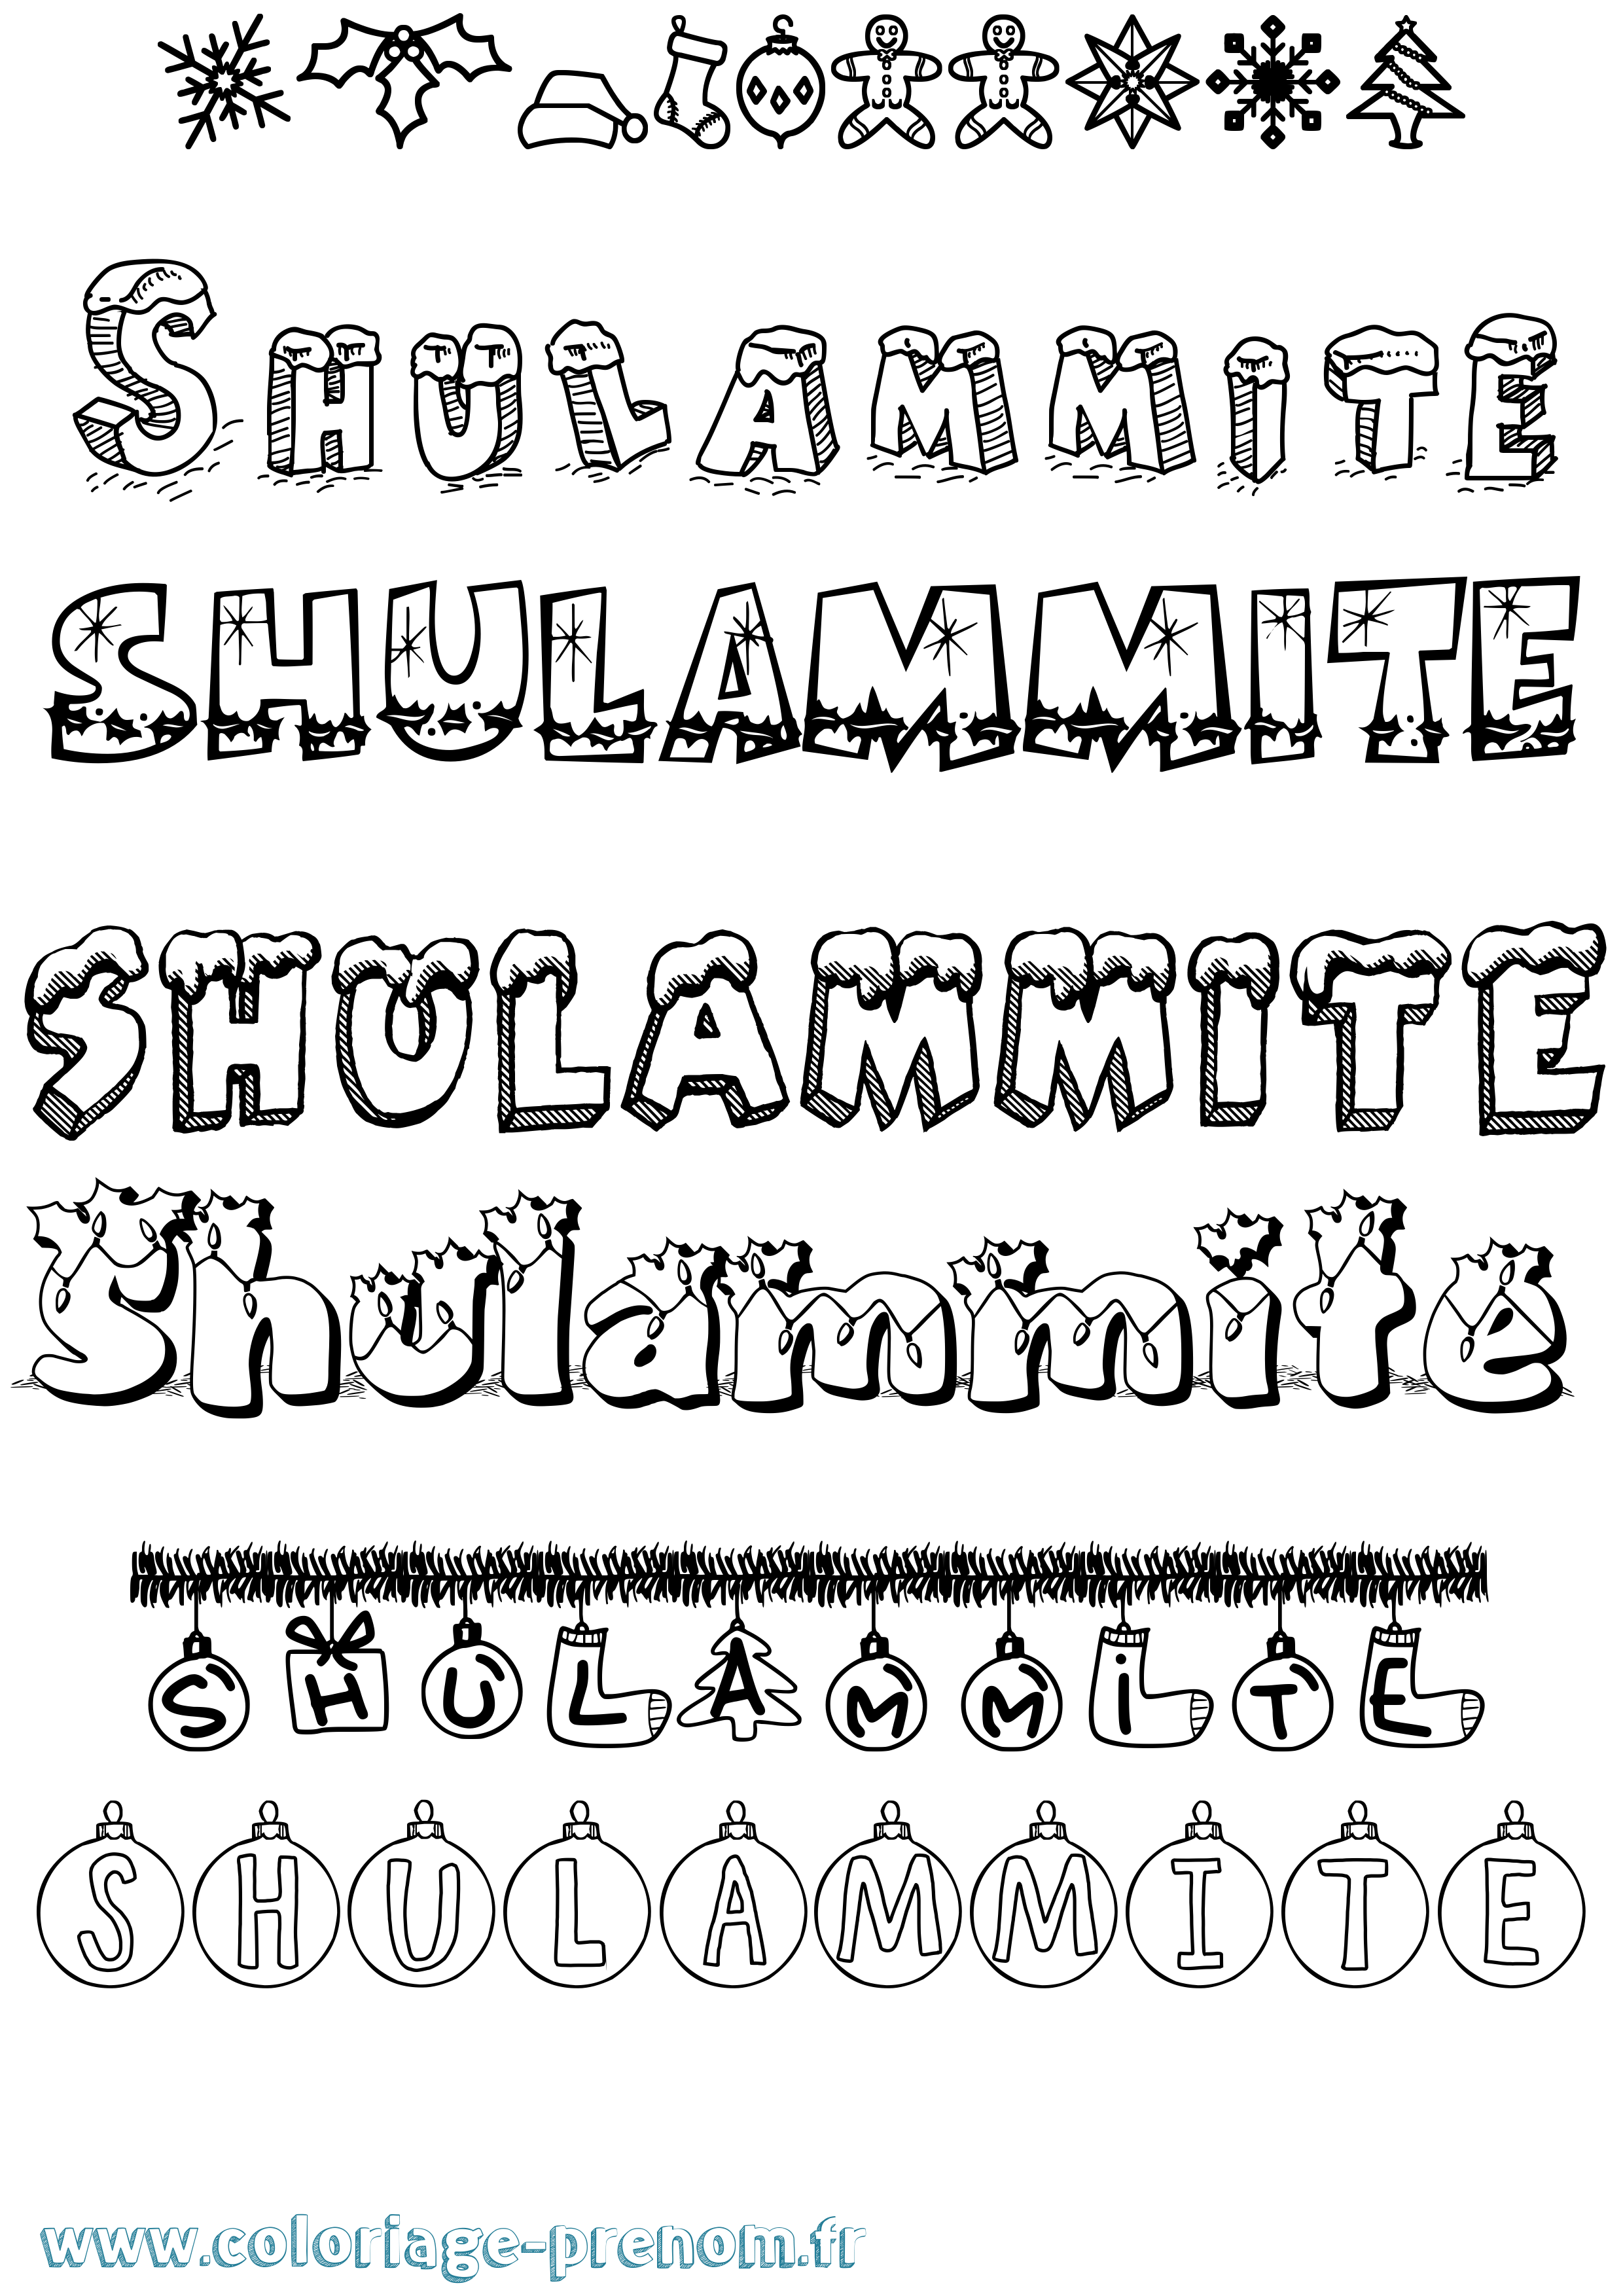 Shulammite
SHULAMMITE
SHULAMMITE
Shulammite
SHULAMMiTE
SHULAMMITE
www.coloriage-prenom.fr